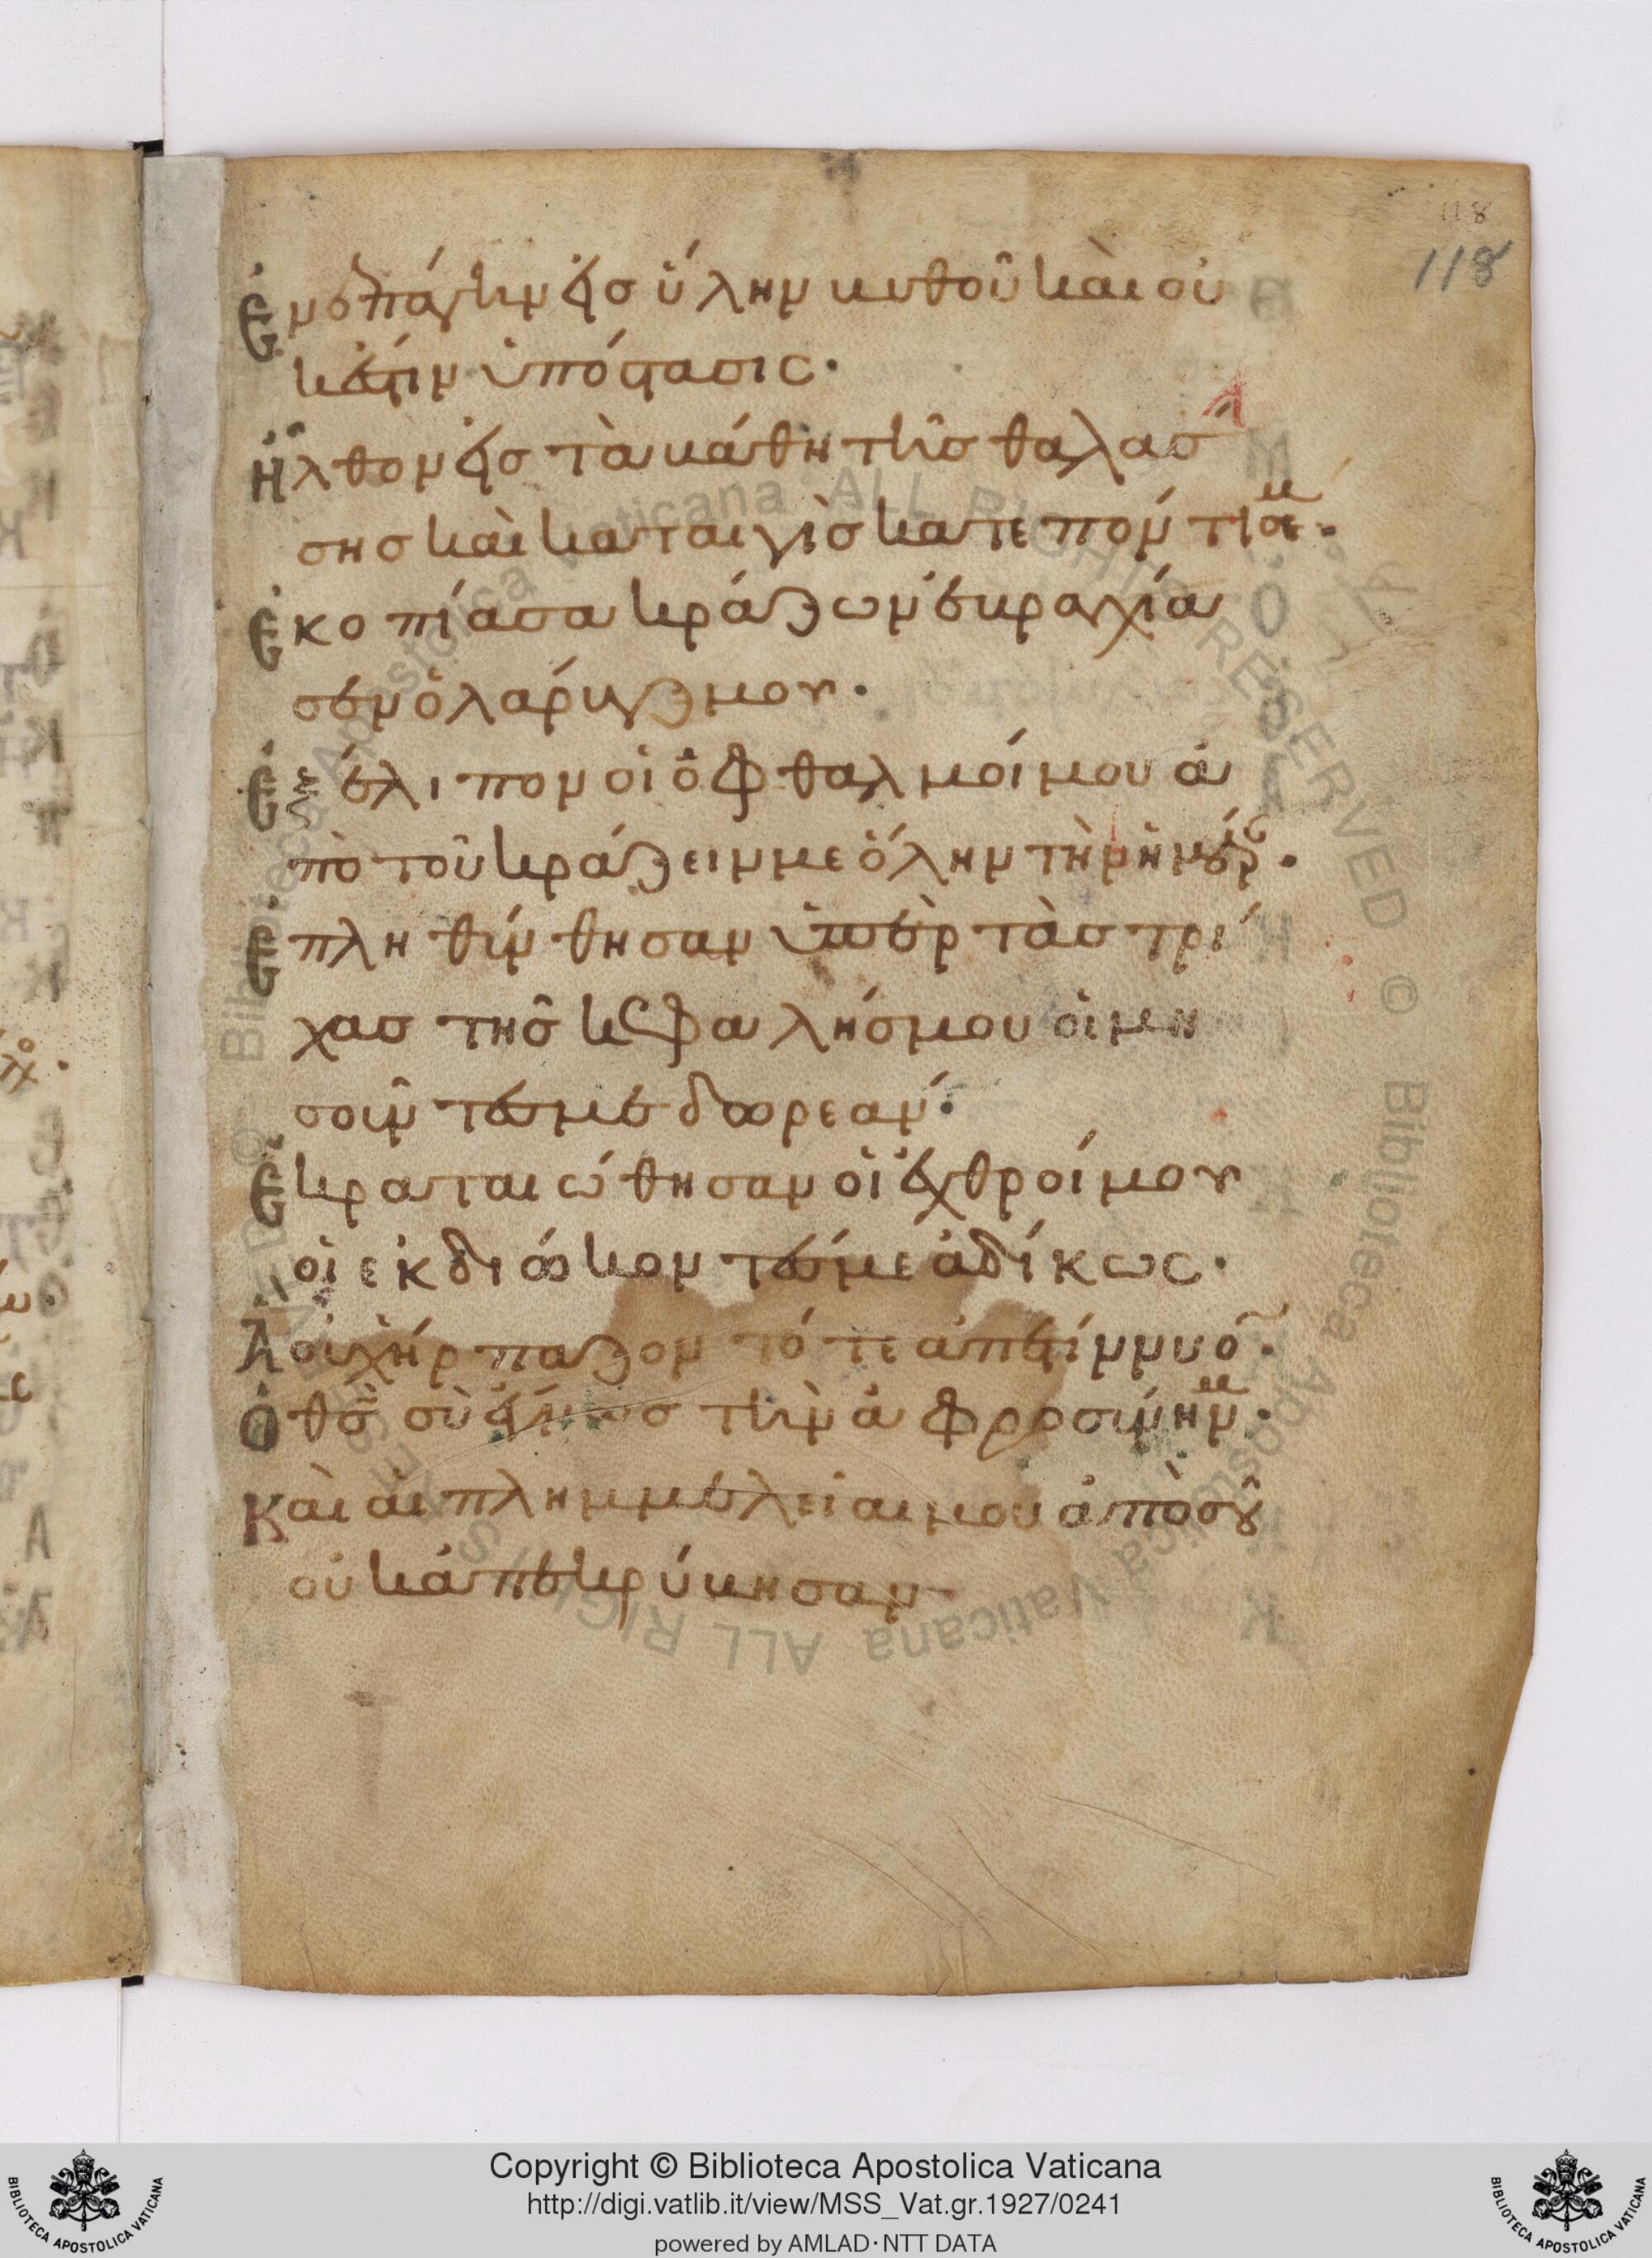 118
118
Ἐνεπάγην εἰσ ὕλην κυθοῦ καὶ οὐ
κέστιν ὑπόστασις·
Ἦλθον εἰσ τὰ κάθη τῆσ θαλάσ
σησ καὶ καταιγὶσ κατεπόντισέ με·
Ἐκοπίασα κράζων ἐκραγχία
σεν ὁ λάρυγξ μου·
Ἐξέλιπον οἱ ὀφθαλμοί μου ἀ
πὸ τοῦ κράζειν με ὅλην τὴν ἡμέραν·
Ἐπληθύνθησαν ὑπὲρ τὰσ τρί
χασ τῆσ κεφαλήσ μου οἱ μη
σοῦντεσ με δωρεάν·
Ἐκραταιώθησαν οἱ ἐχθροί μου
οἱ ἐκδιώκοντέσ με ἀδίκως·
Ἃ οὐχ ἥρπαζον τότε ἀπετίννυον·
Ὁ θσ σὺ ἔγνωσ τὴν ἀφροσύνην μου·
Καὶ αἱ πλημμέλειαι μου ἀπὸ σοῦ
οὐκ ἀπεκρύκησαν
Copyright © Biblioteca Apostolica Vaticana
http://digi.vatlib.it/view/MSS_Vat.gr.1927/0241
powered by AMLAD·NTT DATA
BIBLIOTECA APOSTOLICA VATICANA
BIBLIOTECA APOSTOLICA VATICANA